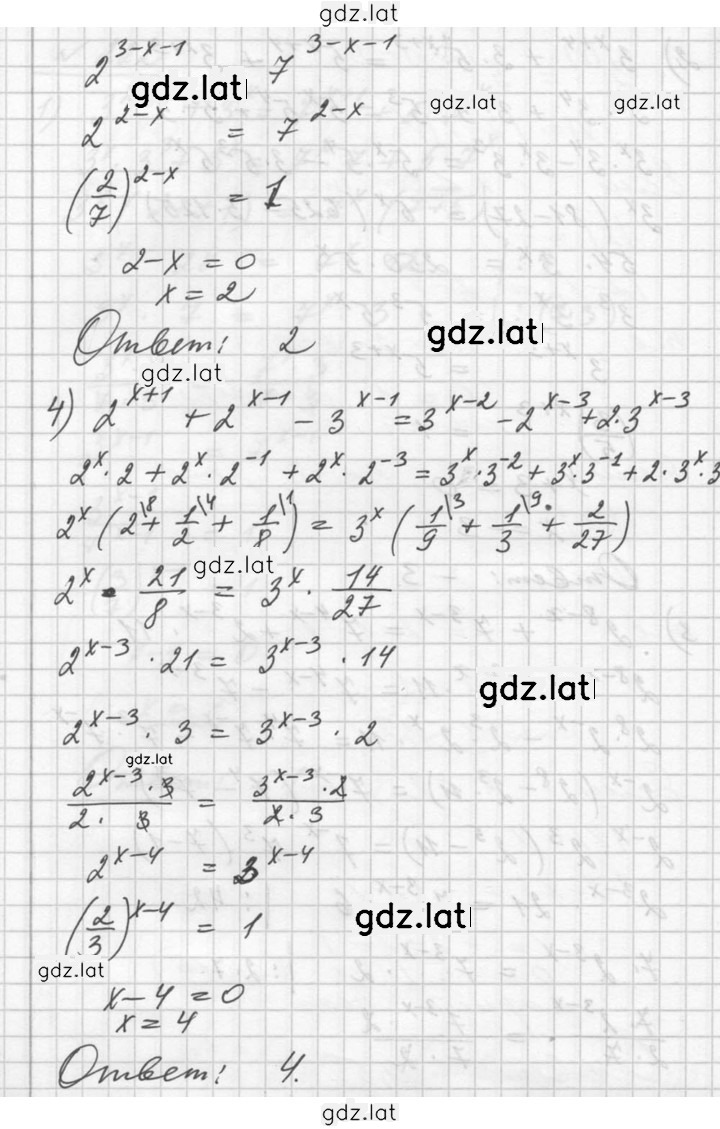 gdz.lat
2^{3-x-1} 7^{3-x-1}
gdz.lat
2^{2-x} = 7^{2-x}
gdz.lat gdz.lat
(2/7)^{2-x} = 1
2-x = 0
x = 2
Ответ: 2
gdz.lat
gdz.lat
4) 2^{x+1} + 2^{x-1} - 3^{x-1} = 3^{x-2} - 2^{x-3} + 2·3^{x-3}
2^x · 2 + 2^x · 2^{-1} + 2^x · 2^{-3} = 3^x · 3^{-2} + 3^x · 3^{-1} + 2 · 3^x · 3
2^x (2\8 + 1/2\4 + 1/8\1) = 3^x (1/9\3 + 1/3\9 + 2/27)
gdz.lat
2^x · 21/8 = 3^x · 14/27
2^{x-3} · 21 = 3^{x-3} · 14
gdz.lat
2^{x-3} · 3 = 3^{x-3} · 2
gdz.lat
2^{x-3} · 3 / 2 · 3 = 3^{x-3} · 2 / 2 · 3
2^{x-4} = 3^{x-4}
(2/3)^{x-4} = 1
gdz.lat
gdz.lat
x - 4 = 0
x = 4
Ответ: 4.
gdz.lat